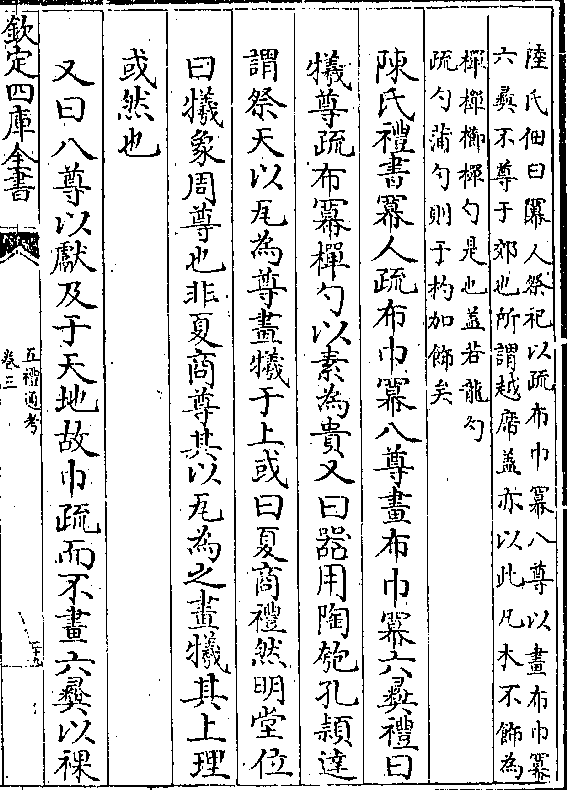 陸氏佃曰冪人祭祀以疏布巾冪八尊以畫布巾冪
六彝不尊于郊也所謂越席蓋亦以此凡木不飾為
樿樿櫛樿勺是也蓋若龍勺
疏勺蒲勺則于杓加飾矣
陳氏禮書冪人疏布巾冪八尊畫布巾冪六彝禮曰
犧尊疏布冪樿勺以素為貴又曰器用陶匏孔穎達
謂祭天以瓦為尊畫犧于上或曰夏商禮然明堂位
曰犧象周尊也非夏商尊其以瓦為之畫犧其上理
或然也
又曰八尊以獻及于天地故巾疏而不畫六彝以祼
欽定四庫全書
五禮通考
卷三